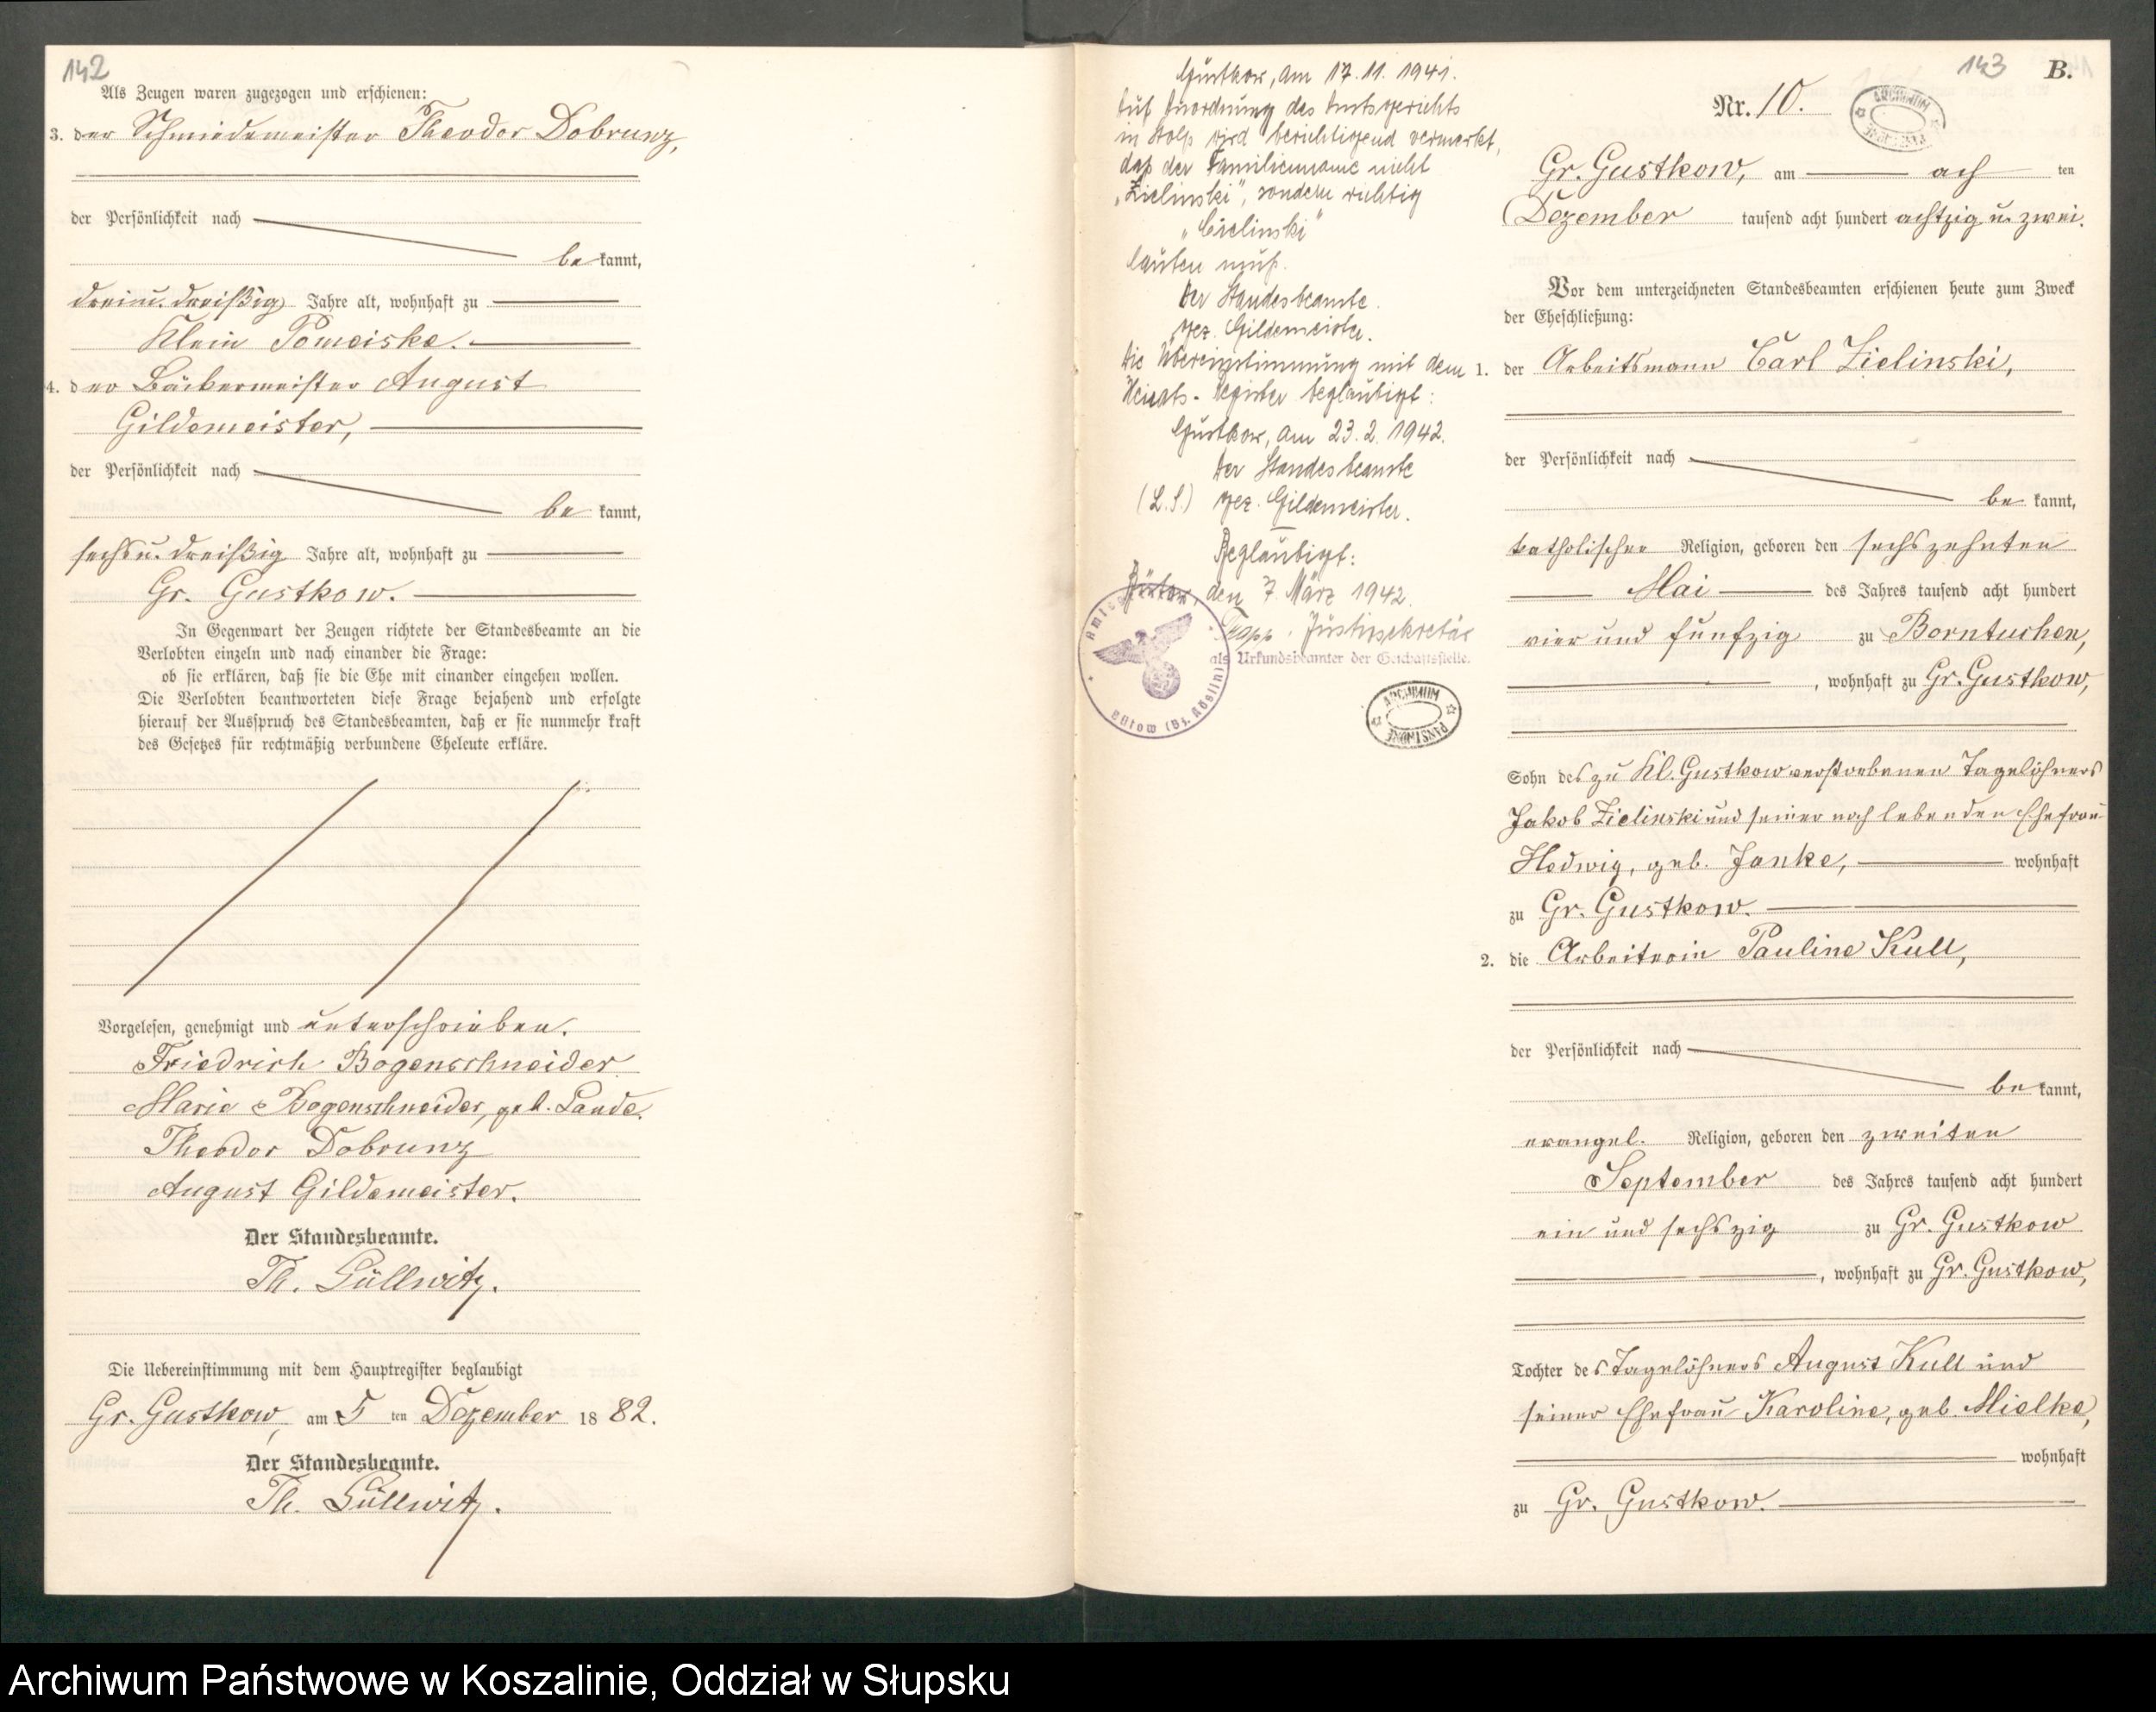 142
Als Zeugen waren zugezogen und erschienen:
3. der Schmiedemeister Theodor Dobrunz,
der Persönlichkeit nach
be kannt,
drei u. dreißig Jahre alt, wohnhaft zu
Klein Pomeiske.
4. der Bäckermeister August
Gildemeister,
der Persönlichkeit nach
be kannt,
sechs u. dreißig Jahre alt, wohnhaft zu
Gr. Gustkow.
In Gegenwart der Zeugen richtete der Standesbeamte an die
Verlobten einzeln und nach einander die Frage:
ob sie erklären, daß sie die Ehe mit einander eingehen wollen.
Die Verlobten beantworteten diese Frage bejahend und erfolgte
hierauf der Ausspruch des Standesbeamten, daß er sie nunmehr kraft
des Gesetzes für rechtmäßig verbundene Eheleute erkläre.
Vorgelesen, genehmigt und unterschrieben.
Friedrich Bogenschneider
Marie Bogenschneider, geb. Lande.
Theodor Dobrunz
August Gildemeister.
Der Standesbeamte.
Th. Güllwitz.
Die Uebereinstimmung mit dem Hauptregister beglaubigt
Gr. Gustkow, am 5 ten Dezember 18 82.
Der Standesbeamte.
Th. Güllwitz.
Gustkow, am 17. 11. 1941.
Auf Anordnung des Amtsgerichts
in Stolp wird berichtigend vermerkt,
daß der Familienname nicht
„Zielinski", sondern richtig
„Cielinski"
lauten muß.
Der Standesbeamte.
gez. Gildemeister.
Die Übereinstimmung mit dem
Heirats-Register beglaubigt:
Gustkow, am 23. 2. 1942.
Der Standesbeamte
(L.S.) gez. Gildemeister.
Beglaubigt:
Bütow, den 7. März 1942.
Justizsekretär
als Urkundsbeamter der Geschäftsstelle.
Bütow (Bz. Köslin)
ARCHIWUM PAŃSTWOWE
143 B.
Nr. 10.
ARCHIWUM
Gr. Gustkow, am ach ten
Dezember tausend acht hundert achtzig u. zwei.
Vor dem unterzeichneten Standesbeamten erschienen heute zum Zweck
der Eheschließung:
1. der Arbeitsmann Carl Zielinski,
der Persönlichkeit nach
be kannt,
katholischer Religion, geboren den sechszehnten
Mai des Jahres tausend acht hundert
vier und fünfzig zu Borntuchen,
, wohnhaft zu Gr. Gustkow,
Sohn des zu Kl. Gustkow verstorbenen Tagelöhners
Jakob Zielinski und seiner noch lebenden Ehefrau
Hedwig, geb. Janke, wohnhaft
zu Gr. Gustkow.
2. die Arbeiterin Pauline Kull,
der Persönlichkeit nach
be kannt,
evangel. Religion, geboren den zweiten
September des Jahres tausend acht hundert
ein und sechszig zu Gr. Gustkow
, wohnhaft zu Gr. Gustkow,
Tochter des Tagelöhners August Kull und
seiner Ehefrau Karoline, geb. Mielke,
wohnhaft
zu Gr. Gustkow.
Archiwum Państwowe w Koszalinie, Oddział w Słupsku